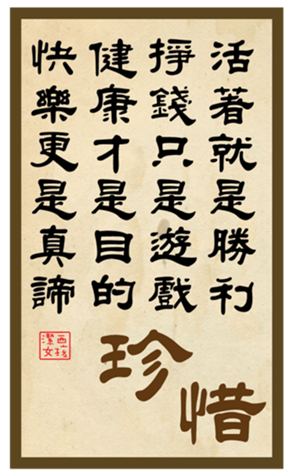 活著就是勝利
掙錢只是遊戲
健康才是目的
快樂更是真諦
珍惜